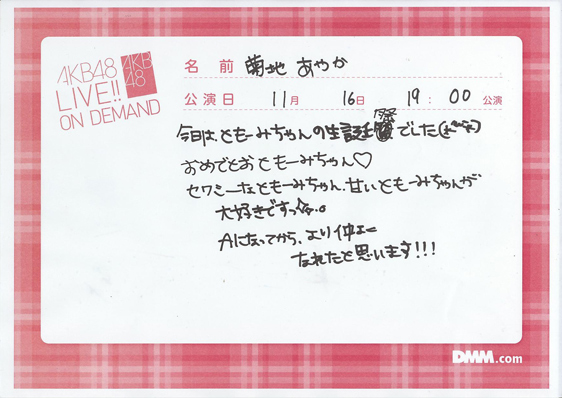 AKB48
LIVE!!
ON DEMAND
AKB
48
名 前 菊地 あやか
公演日 11月 16日 19:00 公演
今日は、ともーみちゃんの生誕祭でした
おめでとおともーみちゃん♡
セクシーなともーみちゃん、甘いともーみちゃんが
大好きですっ☆。
Aになってから、より仲よく
なれたと思います!!!
DMM.com